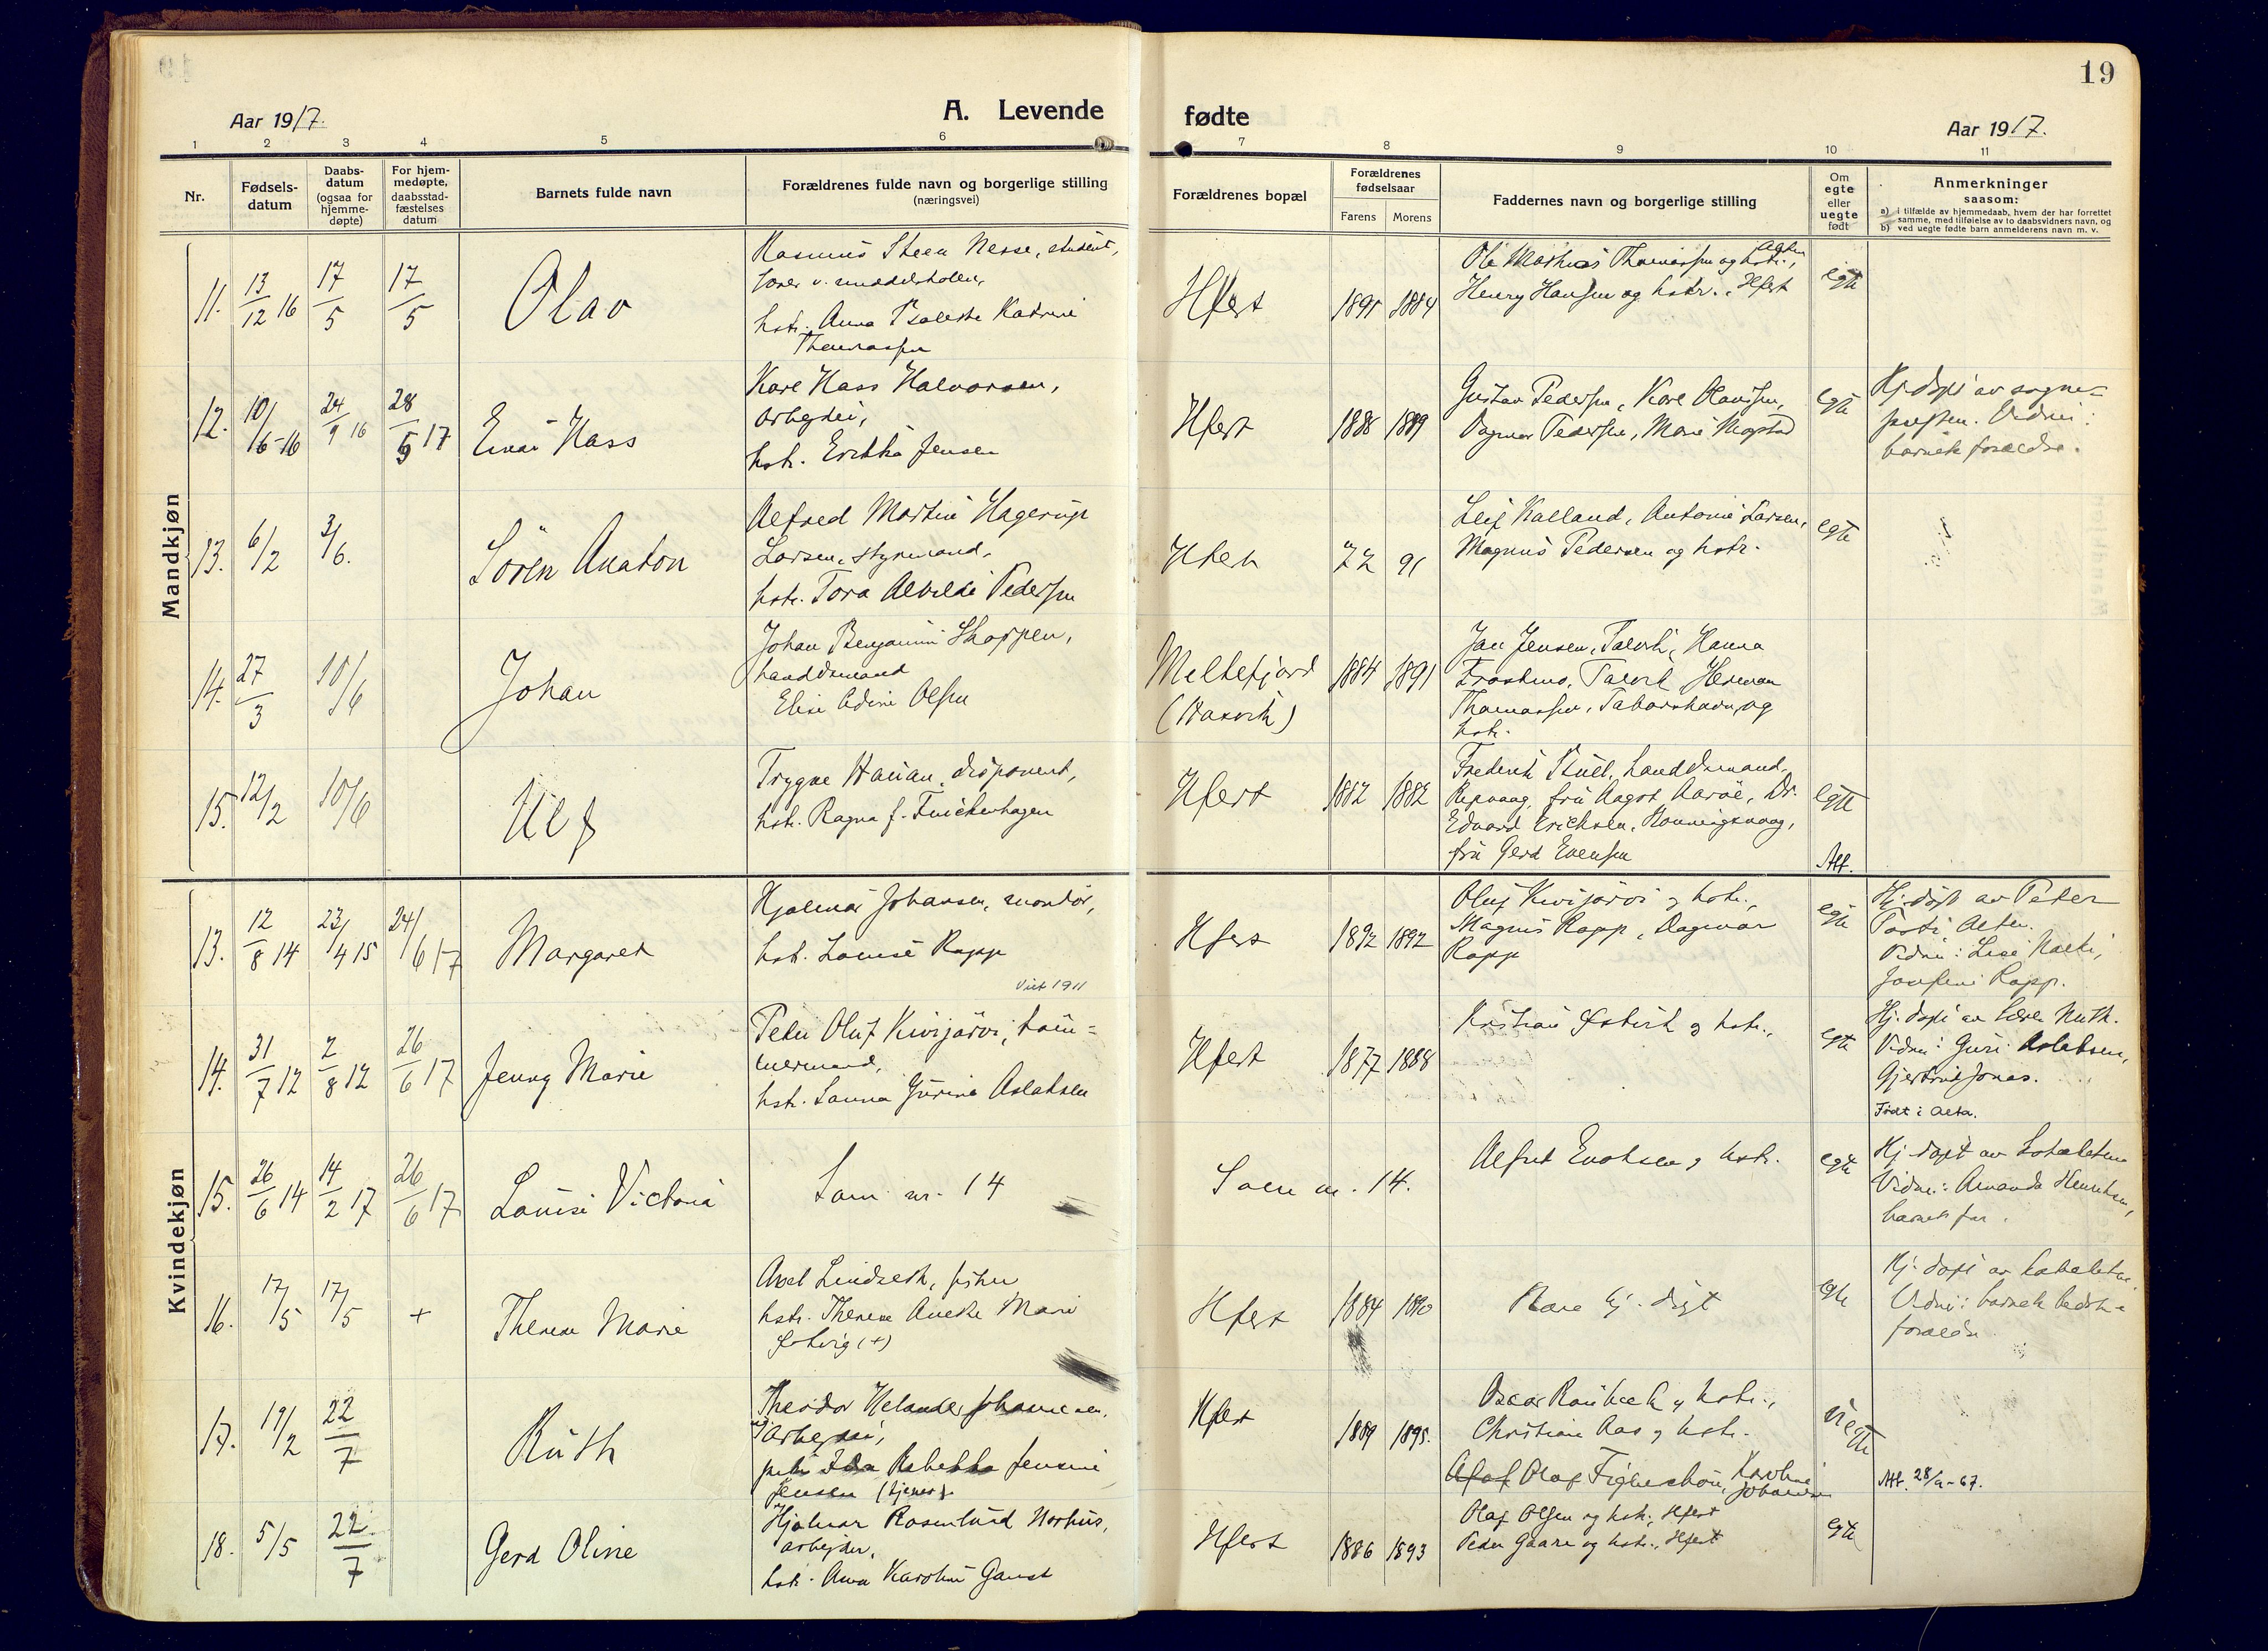 19
Aar 1917.
A. Levende
fødte
Aar 1917.
1 2 3 4 5 6 7 8 9 10 11
Nr.
Fødsels-
datum
Daabs-
datum
(ogsaa for
hjemme-
døpte)
For hjem-
medøpte,
daabsstad-
fæstelses
datum
Barnets fulde navn
Forældrenes fulde navn og borgerlige stilling
(næringsvei)
Forældrenes bopæl
Forældrenes
fødselsaar
Farens Morens
Faddernes navn og borgerlige stilling
Om
egte
eller
uegte
født
Anmerkninger
saasom:
a) i tilfælde av hjemmedaab, hvem der har forrettet
samme, med tilføielse av to daabsvidners navn, og
b) ved uegte fødte barn anmelderens navn m. v.
Mandkjøn
11. 13/12 16 17/5 17/5 Olav
Rasmus Steen Nesse, student,
hstr. Anna Katrine
Thomassen
Hfest 1884
Ole Mathias Thomassen og hstr.,
Henry Hansen og hstr., Hfest
egte
12. 10/6-16 24/9 16 28/5 17 Einar Hass
Kare Hass Halvorsen,
arbeider,
hstr. Erikka Jensen
Hfest 1888 1889
Gustav Pedersen, Kare Olaussen,
Dagmar Pedersen, Marie Mogstad
egte
Hj. døpt av sogne-
presten. Vidner:
barnets forældre.
13. 6/2 3/6. Sören Anaton
Alfred Martin Hagerup
Larsen, styrmand,
hstr. Tora Alvilde Pedersen
Hfest 72 91
Leif Kalland, Antonie Larsen,
Magnus Pedersen og hstr.
egte
14. 27/3 10/6 Johan
Johan Benjamin Skoppen,
handelsmand
Elise Edine Olsen
Meltefjord
(Hasvik)
1884 1891
Jan Jensen, Talvik, Hanna
Talvik, Herman
Thomassen, og
hstr.
15. 12/2 10/6 Ulf
Trygve Hauan, disponent,
hstr. Ragna f. Finckenhagen
Hfest 1882 1882
Frederik Bull, handelsmand,
Repvaag, fru Aagot Aarøe, Dr.
Edvard Erichsen, Honningsvaag,
fru Gerd Evensen
egte
Att.
Kvindekjøn
13. 12/8 14 23/4 15 24/6 17 Margaret
Hjalmar Johansen, montør,
hstr. Louise Rapp
Viet 1911
Hfest 1892 1892
Oluf Kivijärvi og hstr.,
Magnus Rapp, Dagmar
Rapp
egte
Hj. døpt av Peter
Alten.
Vidner: Lise
Josefine Rapp.
14. 31/7 12 2/8 12 26/6 17 Jenny Marie
Peder Oluf Kivijärvi, tøm-
mermand,
hstr. Launa Gurine Aslaksen
Hfest 1877 1888
Kristian og hstr.,
egte
Hj. døpt av lærer
Vidner: Guri Aslaksen,
Gjertrud Jonas.
Født i Alta.
15. 26/6 14 14/2 17 26/6 17 Louise Victoria
Som nr. 14
Som nr. 14.
Alfred Enoksen og hstr.
egte
Hj. døpt av
Vidner: Amanda Henriksen,
barnets far.
16. 17/5 17/5 + Therese Marie
Axel Lindseth, fisker
hstr. Therese Anette Marie
Solvig (+)
Hfest 1884 1890
Bare hj. døpt
egte
Hj. døpt av
Vidner: barnets bedste-
forældre
17. 19/2 22/7 Ruth
Theodor Helander Johannesen,
arbeider,
pike Ida Rebekka Jensine
Jensen (tjener).
Hfest 1889 1895.
Oscar Raubeck og hstr.,
Christian Aas og hstr.
Olaf Karoline
Johansen
uegte
Att. 28/9-67.
18. 5/5 22/7 Gerd Oline
Hjalmar Rosenlund Norhus,
arbeider,
hstr. Anna Karoline Ganst
Hfest 1886 1893
Olaf Olsen og hstr., Hfest
Peder Gaare og hstr., Hfest
egte